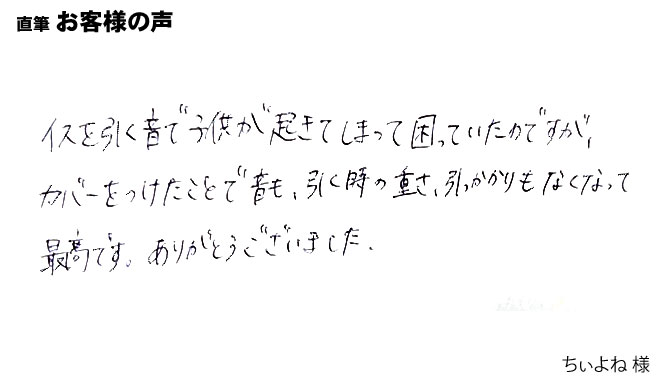 直筆 お客様の声
イスを引く音で子供が起きてしまって困っていたのですが、
カバーをつけたことで音も、引く時の重さ、引っかかりもなくなって
最高です。ありがとうございました。
ちぃよね 様